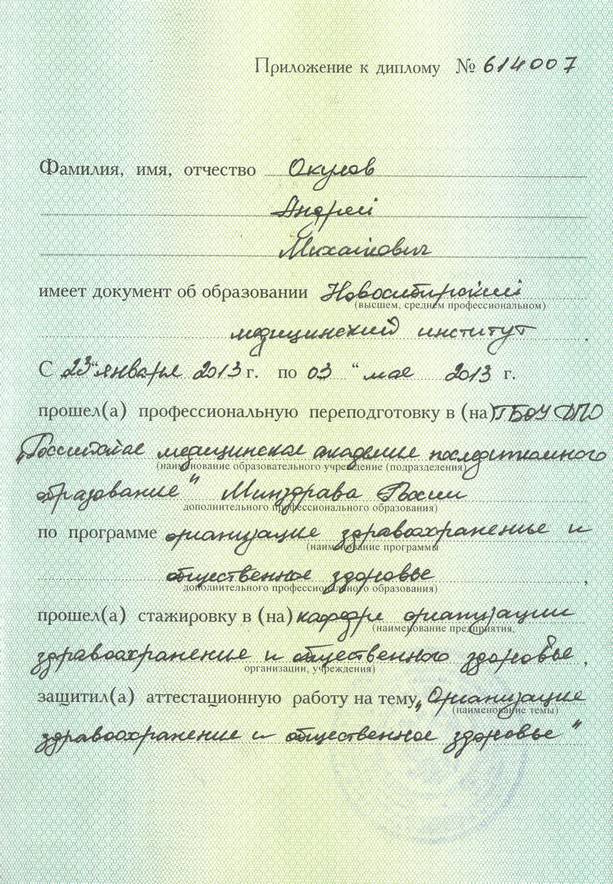 Приложение к диплому № 614007
Фамилия, имя, отчество Окулов
Андрей
Михайлович
имеет документ об образовании Новосибирский
(высшем, среднем профессиональном)
медицинский институт .
С 23 “ января 2013 г. по 03 “ мая 2013 г.
прошел(а) профессиональную переподготовку в (на) ГБОУ ДПО
„Российская медицинская академия последипломного
(наименование образовательного учреждение (подразделения)
образования“ Минздрава России
дополнительного профессионального образования)
по программе организация здравоохранения и
(наименование программы
общественное здоровье ,
дополнительного профессионального образования)
прошел(а) стажировку в (на) кафедре организации
(наименование предприятия,
здравоохранения и общественного здоровья ,
организации, учреждения)
защитил(а) аттестационную работу на тему „Организация
(наименование темы)
здравоохранения и общественное здоровье“